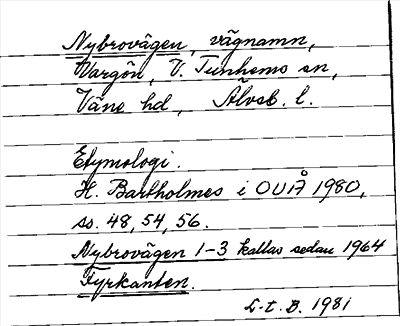 Nybrovägen, vägnamn,
Vargön, V. Tunhems sn,
Väne hd, Älvsb. l.
Etymologi.
H. Bartholmes i OUÅ 1980,
ss. 48, 54, 56.
Nybrovägen 1-3 kallas sedan 1964
Fyrkanten.
L-t. B. 1981